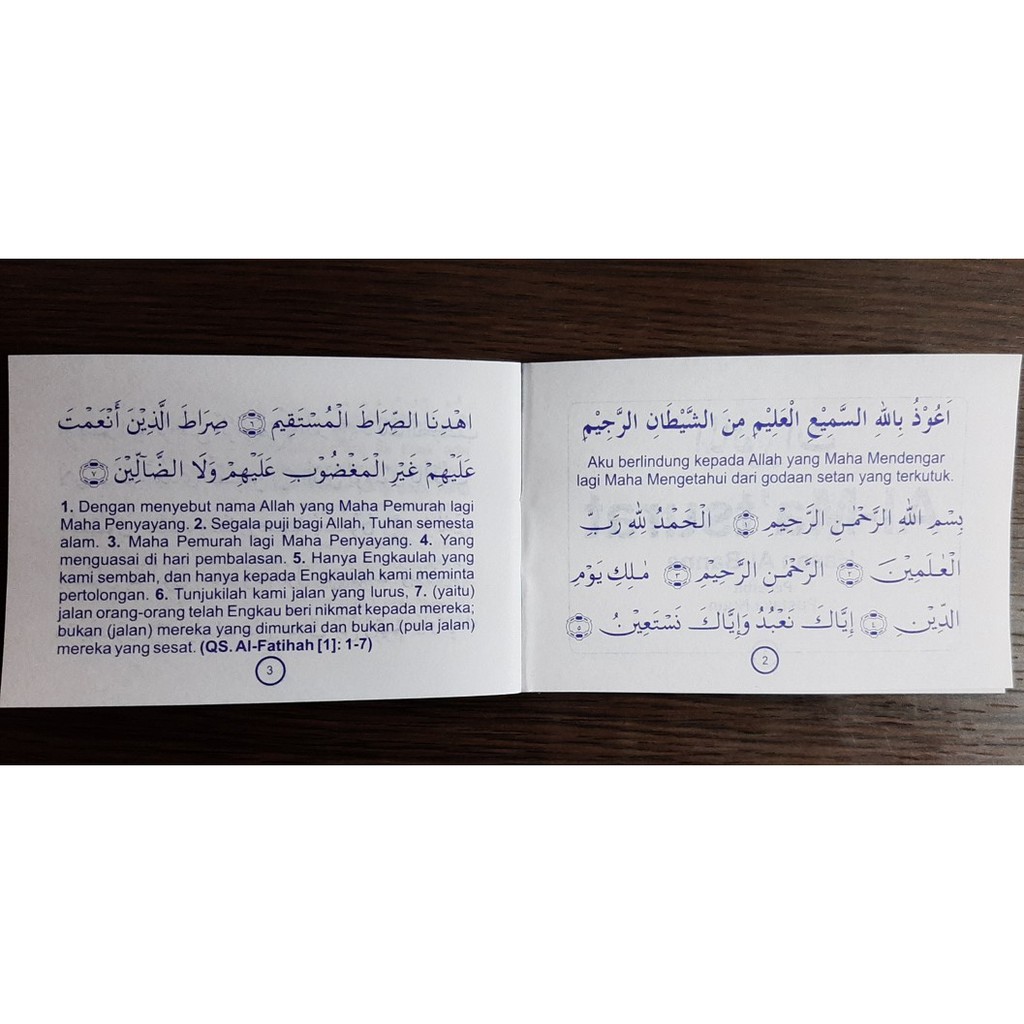 اَعُوْذُ بِاللهِ السَّمِيْعِ الْعَلِيْمِ مِنَ الشَّيْطَانِ الرَّجِيْمِ
Aku berlindung kepada Allah yang Maha Mendengar
lagi Maha Mengetahui dari godaan setan yang terkutuk.
بِسْمِ اللهِ الرَّحْمٰنِ الرَّحِيْمِ ١ الْحَمْدُ لِلهِ رَبِّ
الْعٰلَمِيْنَ ٢ الرَّحْمٰنِ الرَّحِيْمِ ٣ مٰلِكِ يَوْمِ
الدِّيْنِ ٤ إِيَّاكَ نَعْبُدُ وَإِيَّاكَ نَسْتَعِيْنُ ٥
2
اهْدِنَا الصِّرَاطَ الْمُسْتَقِيمَ ٦ صِرَاطَ الَّذِيْنَ أَنْعَمْتَ
عَلَيْهِمْ غَيْرِ الْمَغْضُوْبِ عَلَيْهِمْ وَلَا الضَّآلِّيْنَ ٧
1. Dengan menyebut nama Allah yang Maha Pemurah lagi
Maha Penyayang. 2. Segala puji bagi Allah, Tuhan semesta
alam. 3. Maha Pemurah lagi Maha Penyayang. 4. Yang
menguasai di hari pembalasan. 5. Hanya Engkaulah yang
kami sembah, dan hanya kepada Engkaulah kami meminta
pertolongan. 6. Tunjukilah kami jalan yang lurus, 7. (yaitu)
jalan orang-orang telah Engkau beri nikmat kepada mereka;
bukan (jalan) mereka yang dimurkai dan bukan (pula jalan)
mereka yang sesat. (QS. Al-Fatihah [1]: 1-7)
3